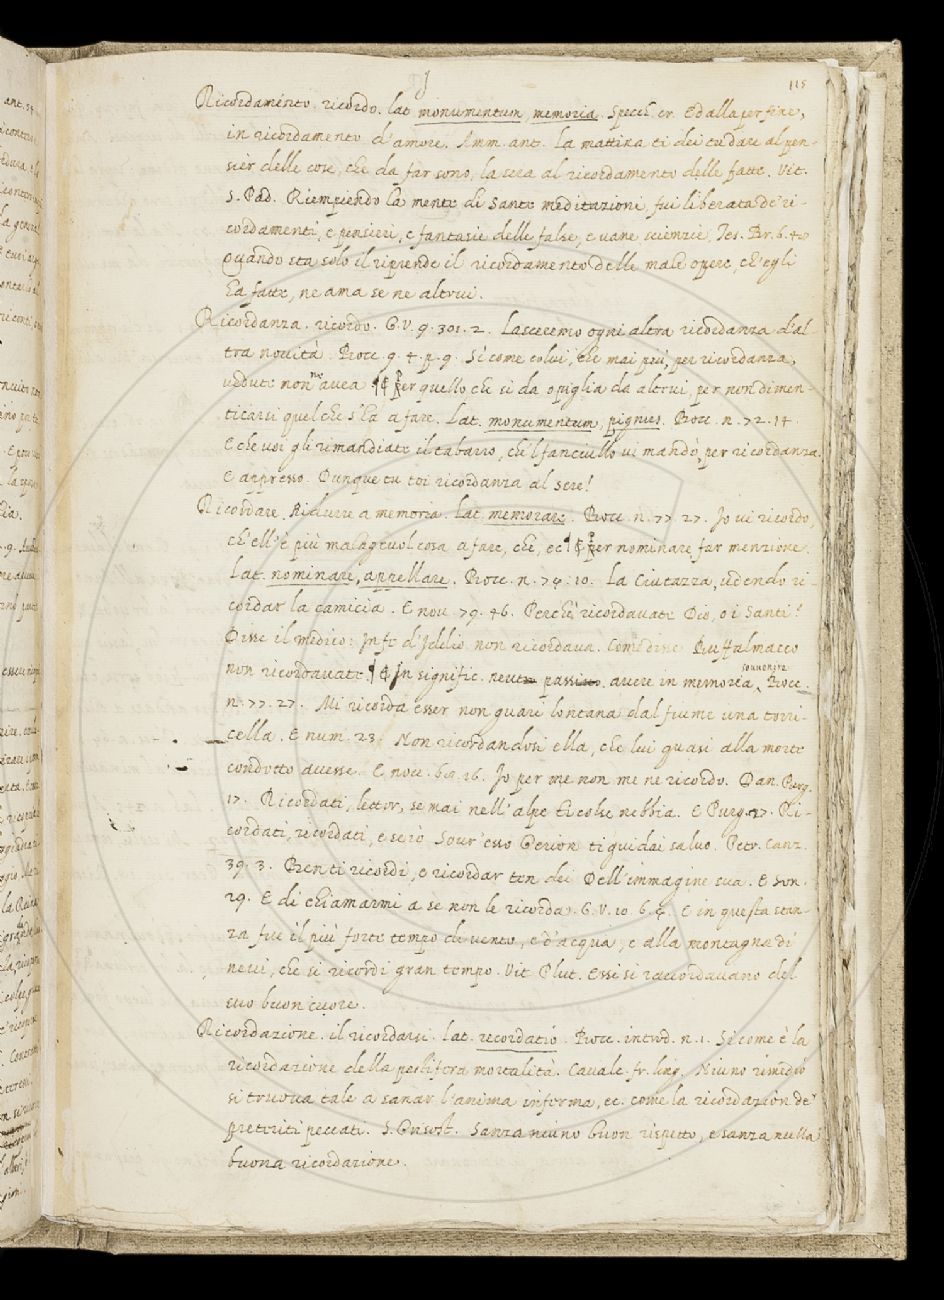 115
Ricordaménto. ricordo. lat. monumentum, memoria. Specch. cr. Ed alla per fine,
in ricordamento d'amore. Amm. ant. La mattina ti dei tu dare al pen-
sièr delle cose, che da far sono, la sera al ricordamento delle fatte. Vit.
S. Pad. Riempiendo la mente di sante meditazioni, fui liberata de' ri-
cordamenti, e pensieri, e fantasie delle false, e vane scienzie. Tes. Br. 6. 40
Quando sta solo il riprende il ricordamento delle male opere, ch'egli
ha fatte, ne ama se ne altrui.
Ricordanza. ricordo. G. V. 9. 301. 2. Lasceremo ogni altra ricordanza d'al-
tra novità. Bocc. g. 4. p. 9. Sì come colui, che mai più, per ricordanza,
vedute non n'avea ¶ Per quello che si da o piglia da altrui, per non dimen-
ticarsi quel che s'ha a fare. Lat. monumentum, pignus. Bocc. n. 72. 14.
E che voi gli rimandiate il tabarro, che 'l fanciullo vi mandò, per ricordanza.
E appresso. Dunque tu toi ricordanza al sere!
Ricordare. Ridurre a memoria. Lat. memorare. Bocc. n. 77. 27. Io vi ricordo,
ch'ell'è più malagevol cosa a fare, che, ec. ¶ Per nominare far menzione.
Lat. nominare, appellare. Bocc. n. 74. 10. La Ciutazza, udendo ri-
cordar la camicia. E nov. 79. 46. Perchè ricordavate Dio, o i Santi!
Disse il medico: In fe d'Iddio non ricordava. Come disse Buffalmacco
non ricordavate. ¶ In signific. neutro passivo. avere in memoria, sovvenire Bocc.
n. 77. 27. Mi ricorda esser non guari lontana dal fiume una torri-
cella. E num. 23. Non ricordandosi ella, che lui quasi alla morte
condotto avesse. E nov. 60. 16. Io per me non me ne ricordo. Dan. Purg.
17. Ricordati, lector, se mai nell'alpe Ti colse nebbia. E Purg. 27. Ri-
cordati, ricordati, e se io Sovr'esso Gerion ti guidai salvo. Petr. Canz.
39. 3. Ben ti ricordi, e ricordar ten dei Dell'immagine sua. E Son.
29. E di chiamarmi a se non le ricorda. G. V. 10. 6. 4. E in questa stan-
za fue il più forte tempo di vento, e d'acqua, e alla montagna di
nevi, che si ricordi gran tempo. Vit. Plut. Essi si raccordavano del
suo buon cuore.
Ricordazione. il ricordarsi. Lat. recordatio. Bocc. introd. n. 1. Si come è la
ricordazione della pestifera mortalità. Cavalc. fr. ling. Niuno rimedio
si truova tale a sanar l'anima inferma, ec. come la ricordazion de'
preteriti peccati. S. Grisost. Sanza neuno buon rispetto, e sanza nulla
buona ricordazione.